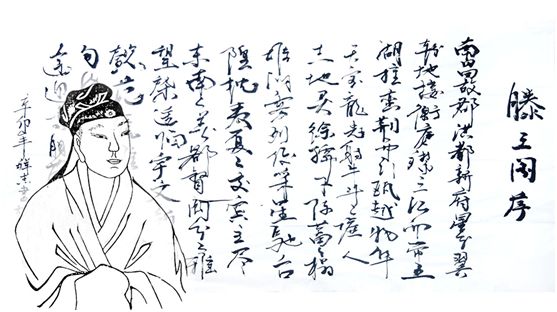 滕王阁序
南昌故郡洪都新府星分翼
轸地接衡庐襟三江而带五
湖控蛮荆而引瓯越物华
天宝龙光射牛斗之墟人
杰地灵徐孺下陈蕃之榻
雄州雾列俊采星驰台
隍枕夷夏之交宾主尽
东南之美都督阎公之雅
望棨遥临宇文
懿范
句
辛卯年